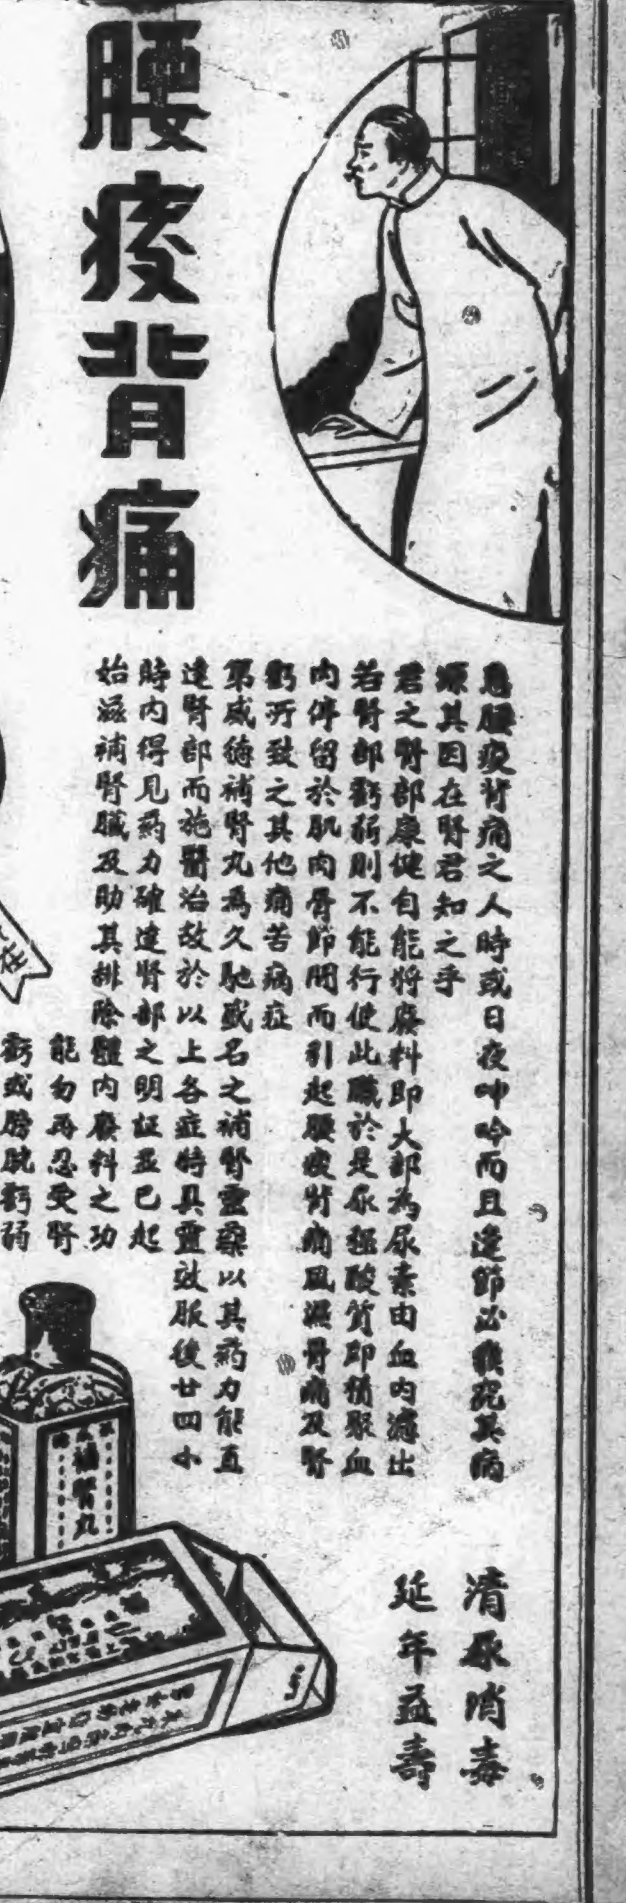 腰痠背痛
患腰痠背痛之人時或日夜呻吟而且逢節必發究其病
源其因在腎君知之乎
君之腎部康健自能將廢料即大部為尿素由血內濾出
若腎部虧弱則不能行使此職於是尿極酸質即積聚血
肉停留於肌肉骨節間而引起腰痠背痛風濕骨痛及腎
虧所致之其他痛苦病症
第威德補腎丸為久馳盛名之補腎靈藥以其药力能直
達腎部而施醫治故於以上各症時具靈效服後廿四小
時内得見药力確達腎部之明証並已起
始滋補腎臟及助其排除體内廢料之功
能勿再忍受腎
虧或膀胱虧弱
清尿消毒
延年益壽
補腎丸